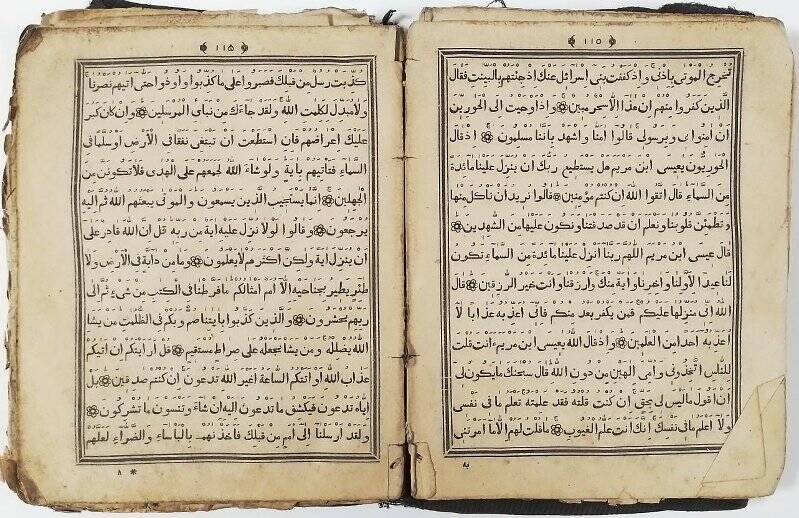 ١١٥
تخرج الموتى باذنى واذ كففت بنى اسرائل عنك اذ جئتهم بالبينت فقال
الذين كفروا منهم ان هذا الا سحر مبين واذ اوحيت الى الحوارين
ان امنوا بى وبرسولى قالوا امنا واشهد باننا مسلمون اذ قال
الحواريون يعيسى ابن مريم هل يستطيع ربك ان ينزل علينا مائدة
من السماء قال اتقوا الله ان كنتم مؤمنين قالوا نريد ان ناكل منها
وتطمئن قلوبنا ونعلم ان قد صدقتنا ونكون عليها من الشهدين
قال عيسى ابن مريم اللهم ربنا انزل علينا مائدة من السماء تكون
لنا عيدا لاولنا واخرنا واية منك وارزقنا وانت خير الرزقين قال
الله انى منزلها عليكم فمن يكفر بعد منكم فانى اعذبه عذابا لا
اعذبه احدا من العلمين واذ قال الله يعيسى ابن مريم ءانت قلت
للناس اتخذونى وامى الهين من دون الله قال سبحنك ما يكون لى
ان اقول ما ليس لى بحق ان كنت قلته فقد علمته تعلم ما فى نفسى
ولا اعلم ما فى نفسك انك انت علم الغيوب ما قلت لهم الا ما امرتنى
به
١١۵
كذبت رسل من قبلك فصبروا على ما كذبوا واوذوا حتى اتيهم نصرنا
ولا مبدل لكلمت الله ولقد جاءك من نباى المرسلين وان كان كبر
عليك اعراضهم فان استطعت ان تبتغى نفقا فى الارض او سلما فى
السماء فتاتيهم باية ولو شاء الله لجمعهم على الهدى فلا تكونن من
الجهلين انما يستجيب الذين يسمعون والموتى يبعثهم الله ثم اليه
يرجعون وقالوا لولا نزل عليه اية من ربه قل ان الله قادر على
ان ينزل اية ولكن اكثرهم لا يعلمون وما من دابة فى الارض ولا
طئر يطير بجناحيه الا امم امثالكم ما فرطنا فى الكتب من شىء ثم الى
ربهم يحشرون والذين كذبوا باياتنا صم وبكم فى الظلمت من يشا
الله يضلله ومن يشا يجعله على صراط مستقيم قل ارايتكم ان اتيكم
عذاب الله او اتتكم الساعة اغير الله تدعون ان كنتم صدقين بل
اياه تدعون فيكشف ما تدعون اليه ان شاء وتنسون ما تشركون
ولقد ارسلنا الى امم من قبلك فاخذنهم بالباساء والضراء لعلهم
* ٨